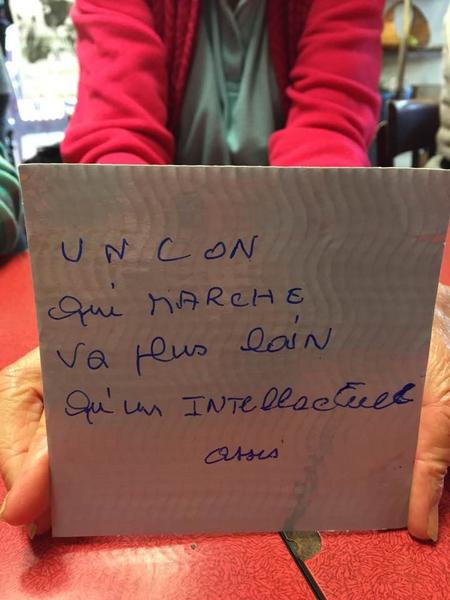 UN CON
qui MARCHE
va plus loiN
qu'un INTellectuel
assis